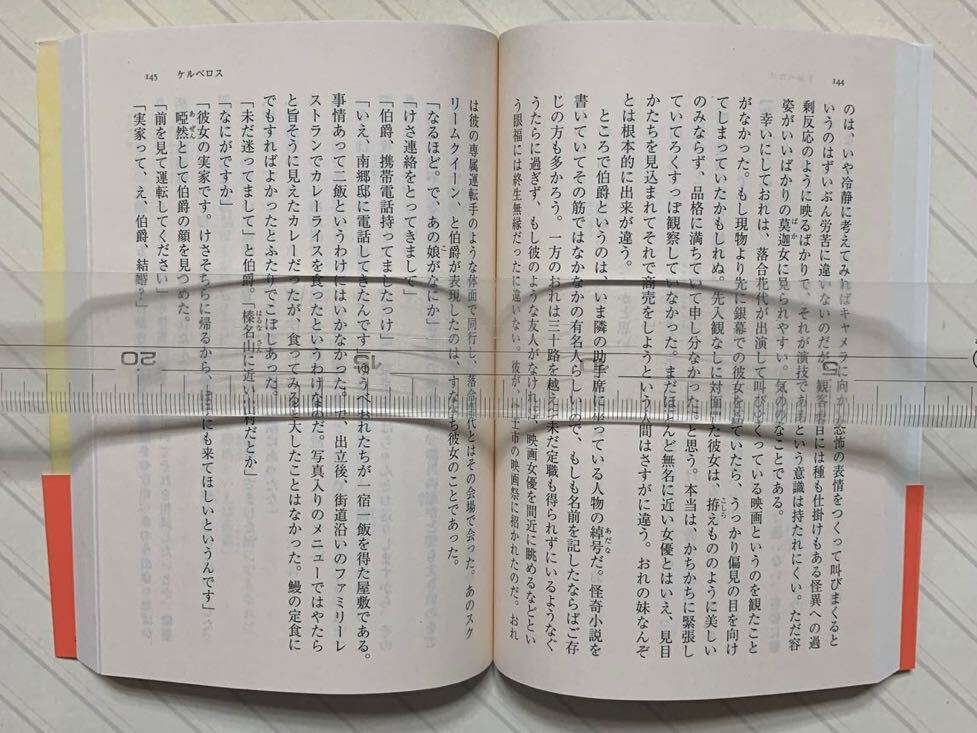 144
のは、いや冷静に考えてみればキャメラに向かって恐怖の表情をつくって叫びまくると
いうのはずいぶん労苦に違いないのだが、観客の目には種も仕掛けもある怪異への過
剰反応のように映るばかりで、それが演技であるという意識は持たれにくい。ただ容
姿がいいばかりの莫迦女に見られやすい。気の毒なことである。
幸いにしておれは、落合花代が出演して叫びまくっている映画というのを観たこと
がなかった。もし現物より先に銀幕での彼女を観ていたら、うっかり偏見の目を向け
てしまっていたかもしれぬ。先入観なしに対面した彼女は、拵えもののように美しい
のみならず、品格に満ちていて申し分なかった。と思う。本当は、かちかちに緊張し
ていてろくすっぽ観察していなかった。まだほとんど無名に近い女優とはいえ、見目
かたちを見込まれてそれで商売をしようという人間はさすがに違う。おれの妹なんぞ
とは根本的に出来が違う。
ところで伯爵というのは、いま隣の助手席に坐っている人物の綽号だ。怪奇小説を
書いていてその筋ではなかなかの有名人らしいので、もしも名前を記したならばご存
じの方も多かろう。一方のおれは三十路を越えて未だ定職も得られずにいるようなぐ
うたらに過ぎず、もし彼のような友人がなければ、映画女優を間近に眺めるなどとい
う眼福には終生無縁だったに違いない。彼が、
士市の映画祭に招かれたのだ。おれ
145 ケルベロス
は彼の専属運転手のような体面で同行し、落合花代とはその会場で会った。あのスク
リームクイーン、と伯爵が表現したのは、すなわち彼女のことであった。
「なるほど。で、あの娘がなにか」
「けさ連絡をとってきまして」
「伯爵、携帯電話持ってましたっけ」
「いえ、南郷邸に電話してきたんです」ゆうべおれたちが一宿一飯を得た屋敷である。
事情あって二飯というわけにはいかなかった。で、出立後、街道沿いのファミリーレ
ストランでカレーライスを食ったというわけなのだ。写真入りのメニューではやたら
と旨そうに見えたカレーだったが、食ってみると大したことはなかった。鰻の定食に
でもすればよかったとふたりでこぼしあった。
「未だ迷ってまして」と伯爵。「榛名山に近い山村だとか」
「なにがですか」
「彼女の実家です。けさそちらに帰るから、ぼくにも来てほしいというんです」
唖然として伯爵の顔を見つめた。
「前を見て運転してください」
「実家って、え、伯爵、結婚？」
5
15
20